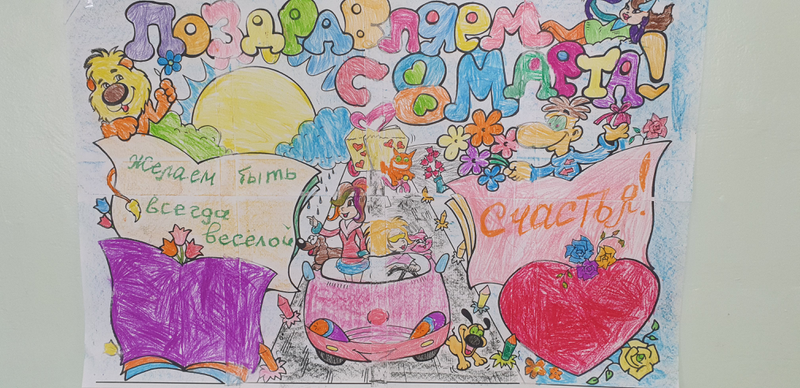 ПОЗДРАВЛЯЕМ
С 8 МАРТА!
Желаем быть
всегда
веселой
Счастья!